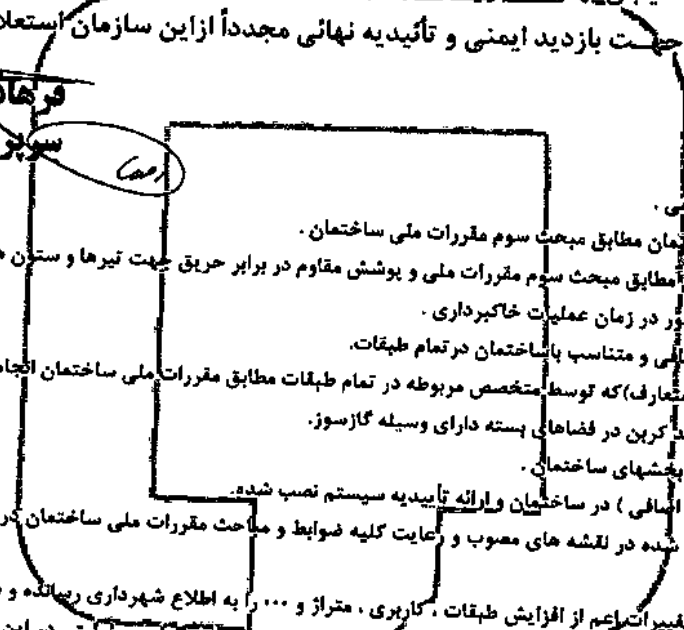 جهت بازدید ایمنی و تأئیدیه نهائی مجدداً ازاین سازمان استعلا
فرهاد
امضا
تمان مطابق مبحث سوم مقررات ملی ساختمان .
مطابق مبحث سوم مقررات ملی و پوشش مقاوم در برابر حریق جهت تیرها و ستون
ور در زمان عملیات خاکبرداری .
افی و متناسب باساختمان درتمام طبقات.
متعارف)که توسط متخصص مربوطه در تمام طبقات مطابق مقررات ملی ساختمان انجام
د کربن در فضاهای بسته دارای وسیله گازسوز.
بخشهای ساختمان .
اضافی ) در ساختمان و ارائه تأییدیه سیستم نصب شده.
شده در نقشه های مصوب و رعایت کلیه ضوابط و مباحث مقررات ملی ساختمان در
تغییرات اعم از افزایش طبقات ، کاربری ، متراژ و ... را به اطلاع شهرداری رسانده و